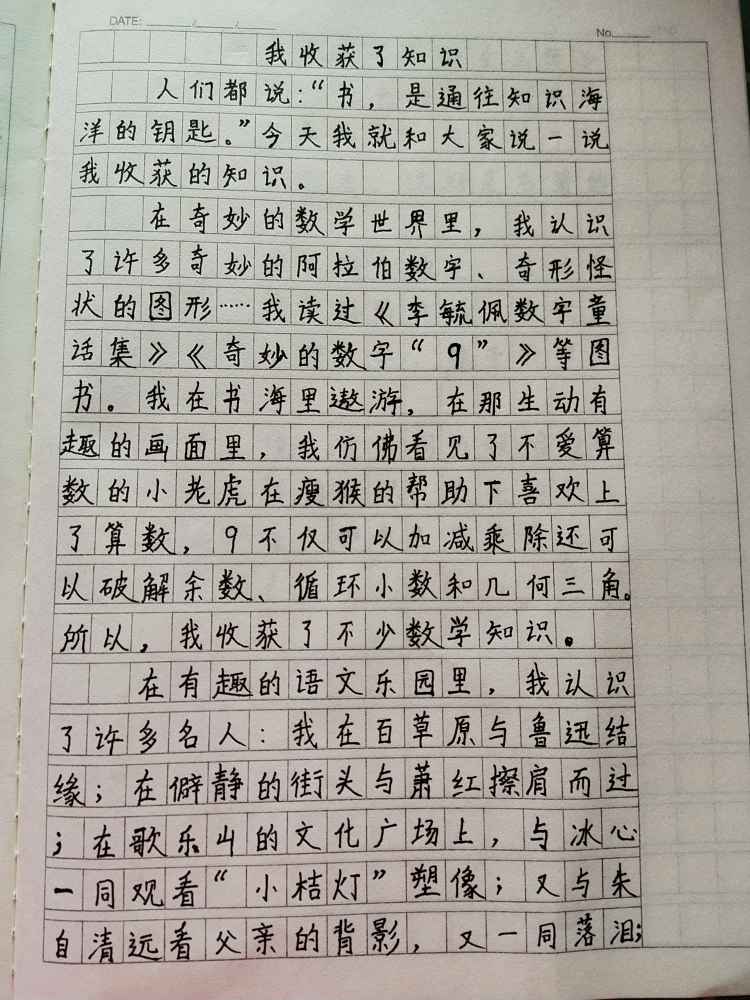 DATE:
No.
我收获了知识
人们都说：“书，是通往知识海
洋的钥匙。”今天我就和大家说一说
我收获的知识。
在奇妙的数学世界里，我认识
了许多奇妙的阿拉伯数字、奇形怪
状的图形……我读过《李毓佩数字童
话集》《奇妙的数字“9”》等图
书。我在书海里遨游，在那生动有
趣的画面里，我仿佛看见了不爱算
数的小老虎在瘦猴的帮助下喜欢上
了算数，9不仅可以加减乘除还可
以破解余数、循环小数和几何三角。
所以，我收获了不少数学知识。
在有趣的语文乐园里，我认识
了许多名人：我在百草原与鲁迅结
缘；在僻静的街头与萧红擦肩而过
；在歌乐山的文化广场上，与冰心
一同观看“小桔灯”塑像；又与朱
自清远看父亲的背影，又一同落泪；